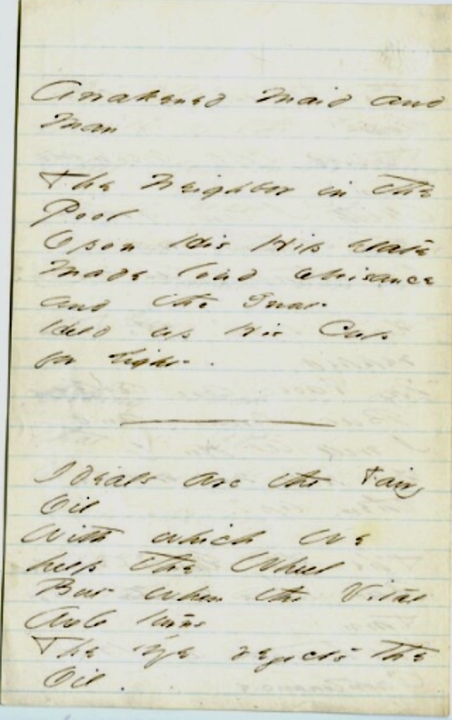 Awakened Maid and
Man
The Neighbor in the
Pool
Upon His Hip elate
Made loud obeisance
and the Gnat
Held up His Cup
for Light.
Ideals are the Fairy
Oil
With which We
help the Wheel
But when the Vital
Axle turns
The Eye rejects the
Oil.